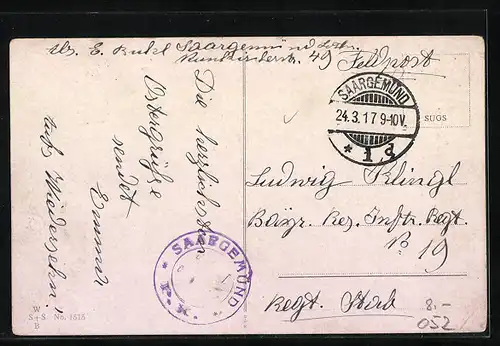 Abs. E. Saargemünd Lothr.
49
Feldpost
Die herzlichsten
Ostergrüße
sendet
Emma
auf Wiedersehn!
SAARGEMÜND
24.3.17 9-10V.
* 1 q
SUGS
Ludwig Klingl
Bayr. Res. Inftr. Regt.
No 19
Regt. Stab
SAARGEMÜND
W
S+S No. 1515
B
8.-
052